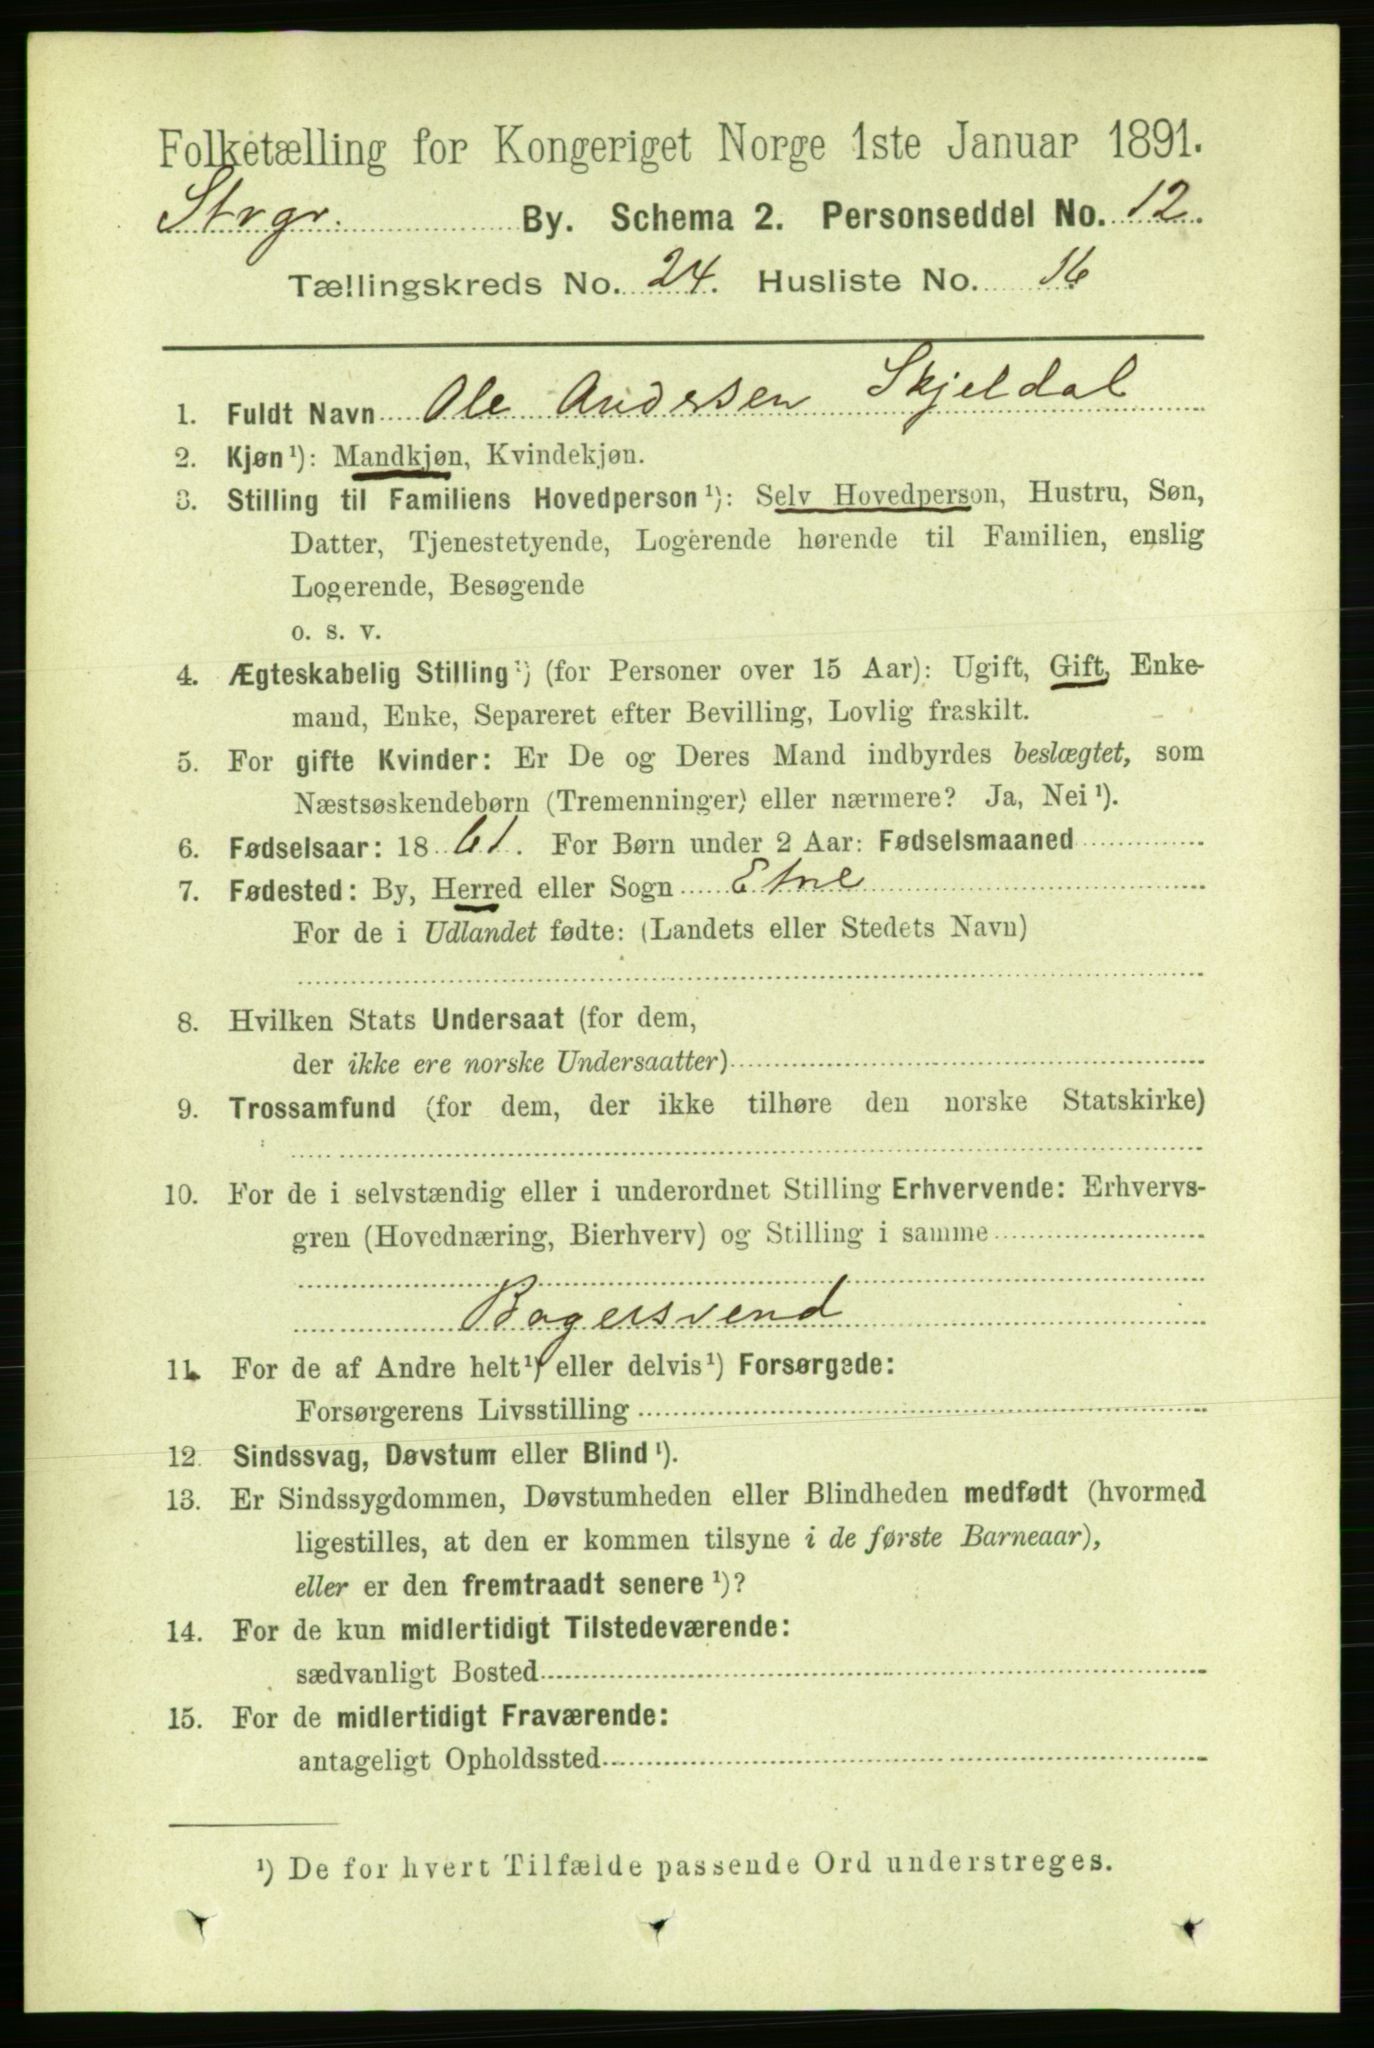 Folketælling for Kongeriget Norge 1ste Januar 1891.
Stvgr. By. Schema 2. Personseddel No. 12.
Tællingskreds No. 24. Husliste No. 16
1. Fuldt Navn Ole Andersen Skjeldal
2. Kjøn¹): Mandkjøn, Kvindekjøn.
3. Stilling til Familiens Hovedperson¹): Selv Hovedperson, Hustru, Søn,
Datter, Tjenestetyende, Logerende hørende til Familien, enslig
Logerende, Besøgende
o. s. v.
4. Ægteskabelig Stilling¹) (for Personer over 15 Aar): Ugift, Gift, Enke-
mand, Enke, Separeret efter Bevilling, Lovlig fraskilt.
5. For gifte Kvinder: Er De og Deres Mand indbyrdes beslægtet, som
Næstsøskendebørn (Tremenninger) eller nærmere? Ja, Nei¹).
6. Fødselsaar: 1861. For Børn under 2 Aar: Fødselsmaaned
7. Fødested: By, Herred eller Sogn Etne
For de i Udlandet fødte: (Landets eller Stedets Navn)
8. Hvilken Stats Undersaat (for dem,
der ikke ere norske Undersaatter)
9. Trossamfund (for dem, der ikke tilhøre den norske Statskirke)
10. For de i selvstændig eller i underordnet Stilling Erhvervende: Erhvervs-
gren (Hovednæring, Bierhverv) og Stilling i samme
Bagersvend
11. For de af Andre helt¹) eller delvis¹) Forsørgede:
Forsørgerens Livsstilling
12. Sindssvag, Døvstum eller Blind¹).
13. Er Sindssygdommen, Døvstumheden eller Blindheden medfødt (hvormed
ligestilles, at den er kommen tilsyne i de første Barneaar),
eller er den fremtraadt senere¹)?
14. For de kun midlertidigt Tilstedeværende:
sædvanligt Bosted
15. For de midlertidigt Fraværende:
antageligt Opholdssted
¹) De for hvert Tilfælde passende Ord understreges.